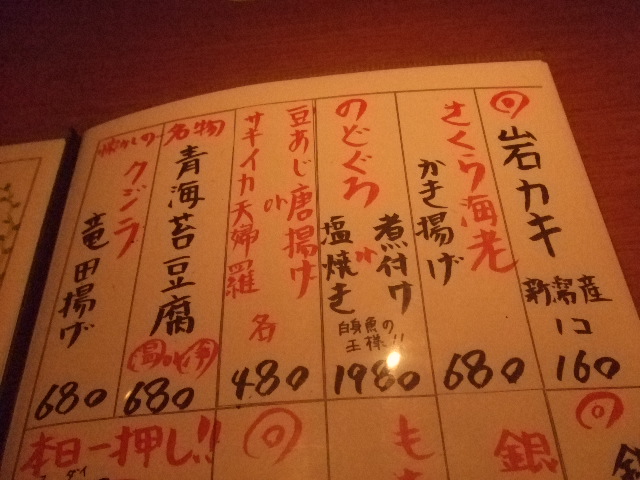 岩カキ
新潟産
1コ
160
さくら海老
かき揚げ
680
のどぐろ
煮付け
or
塩焼き
白身魚の
王様!!
1980
豆あじ唐揚げ
or
サキイカ天婦羅
各
480
名物
青海苔豆腐
680
懐かしの
クジラ
竜田揚げ
680
本日一押し!!
も
銀